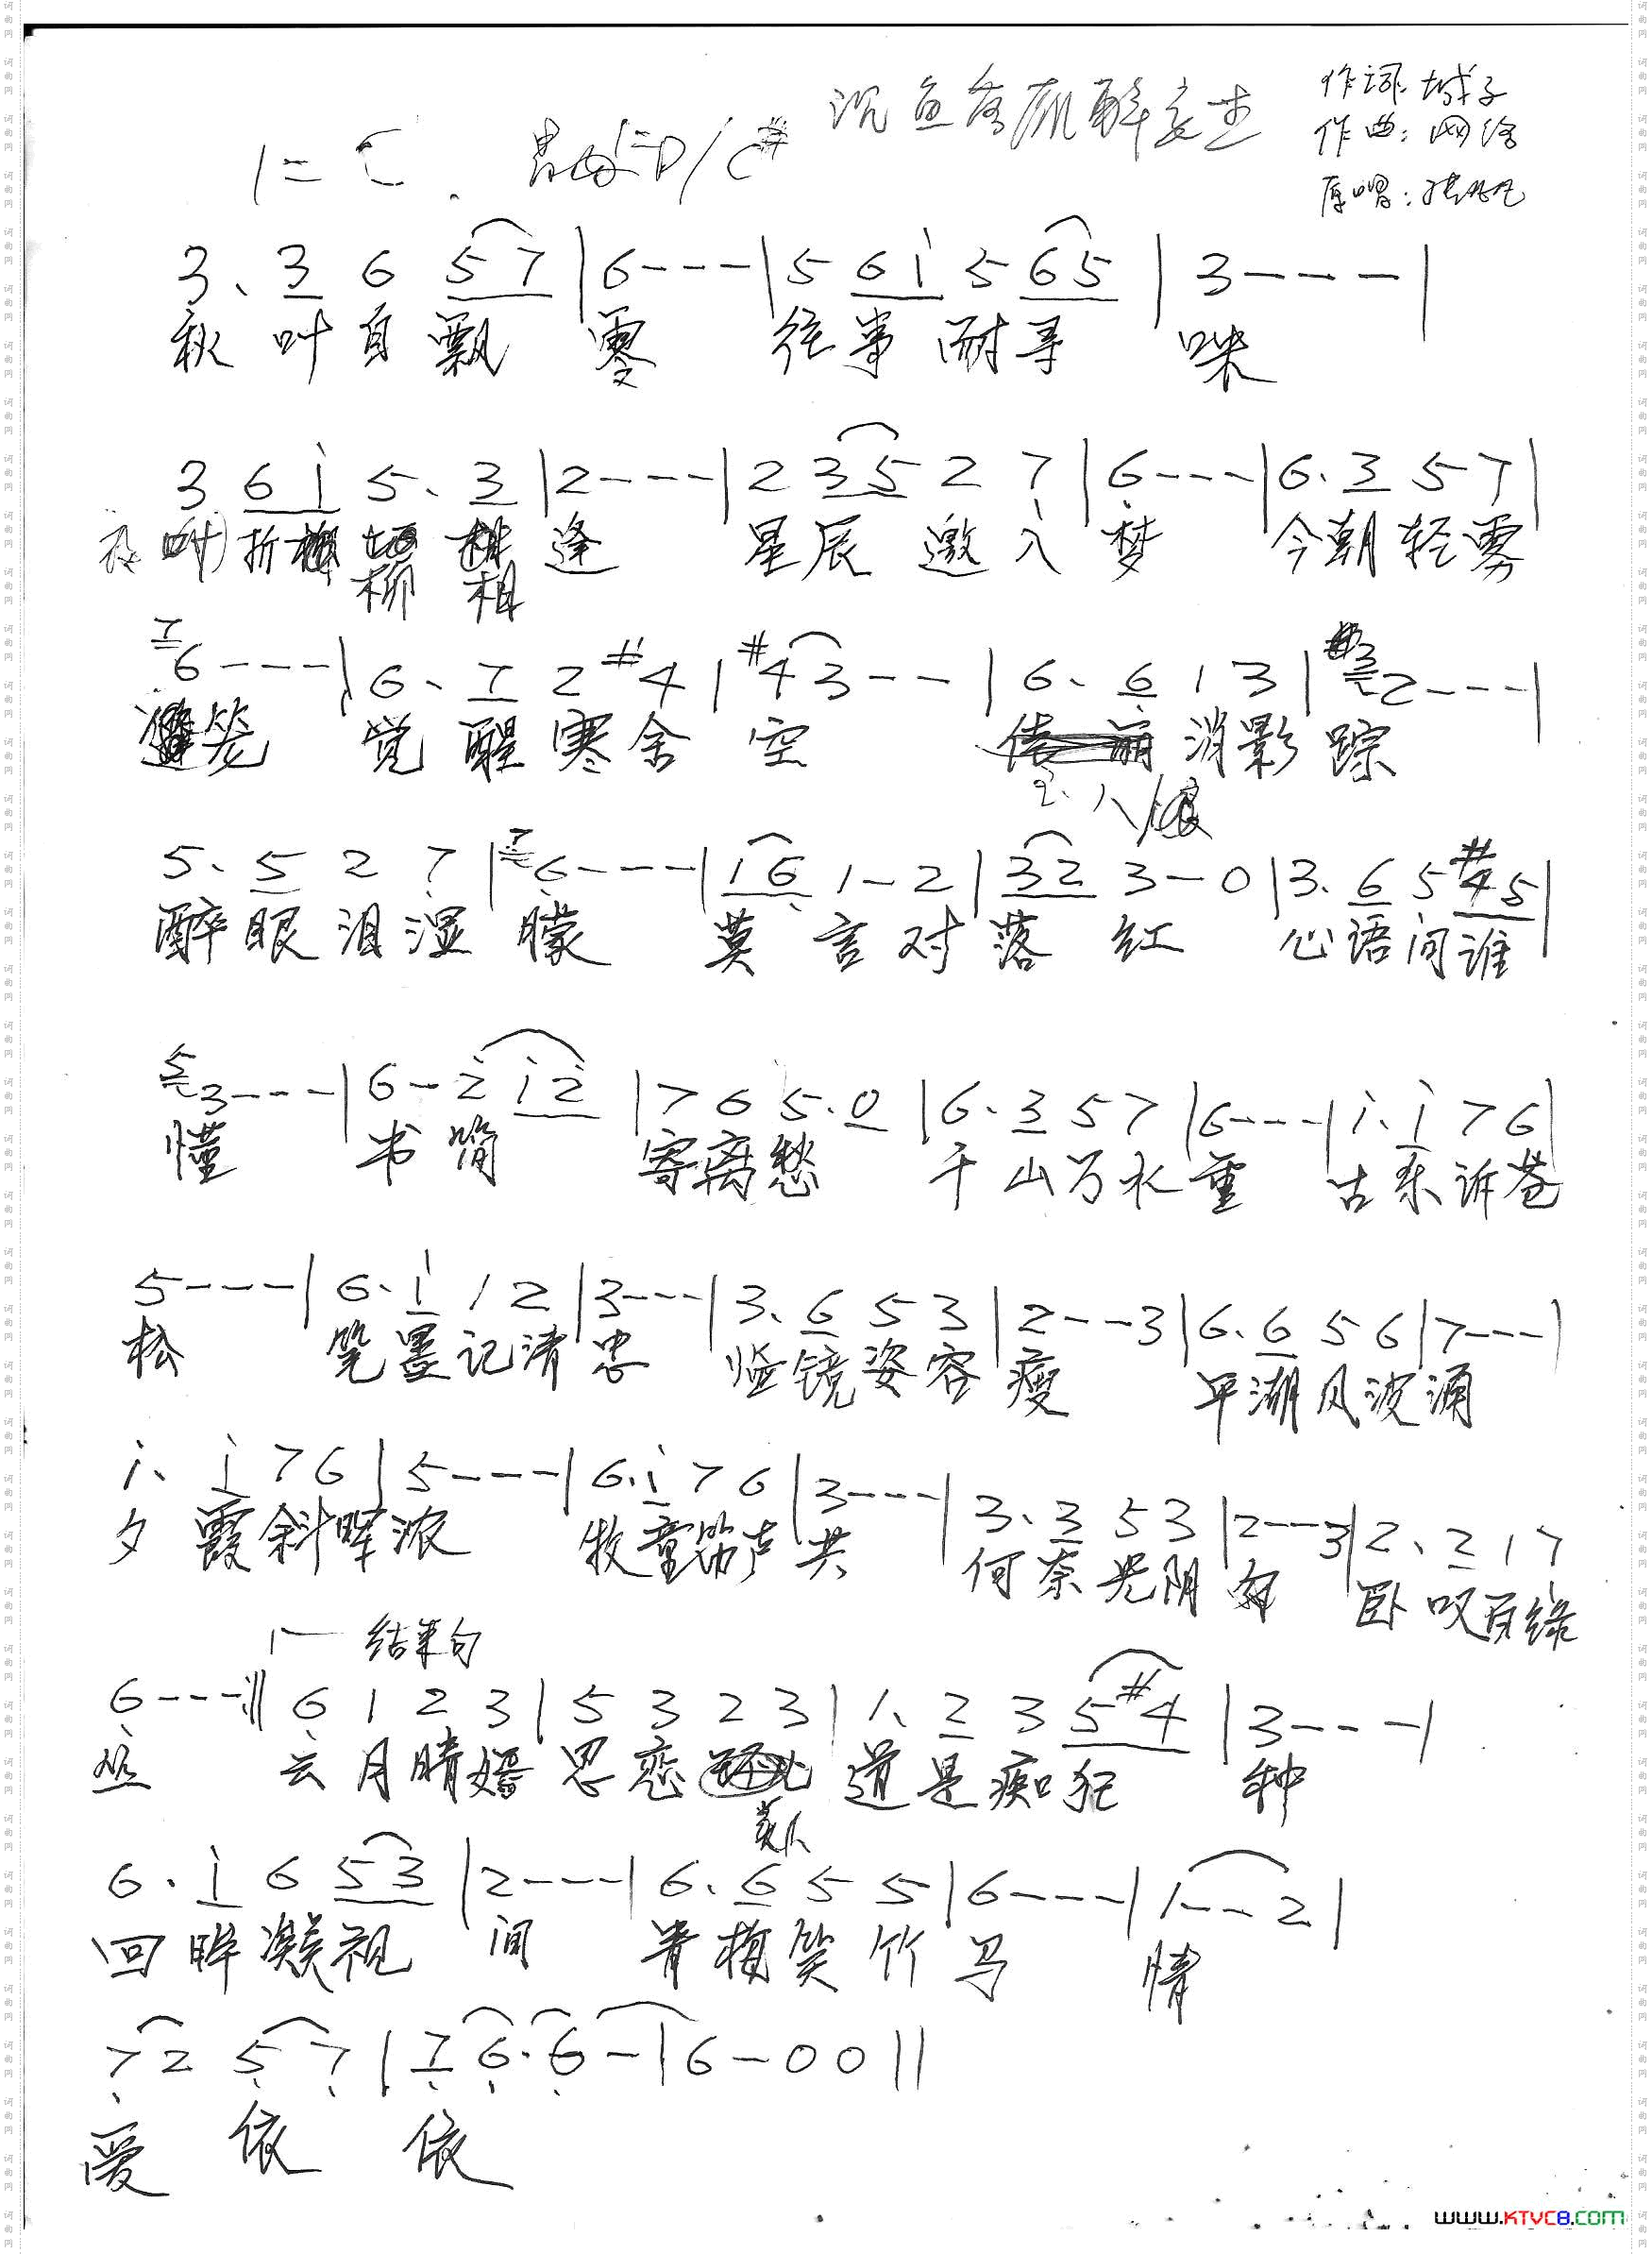 沉鱼落雁醉
作词:城子
作曲:网络
原唱:
1=C.
3. 3 6 5 7 | 6 - - - | 5 6 i 5 6 5 | 3 - - - |
秋叶自飘零 往事耐寻味
3 6 i 5. 3 | 2 - - - | 2 3 5 2 7 | 6 - - - | 6. 3 5 7 |
折柳相逢 星辰邀入梦 今朝轻雾
7 6 - - - | 6. 7 2 #4 | #4 3 - - | 6. 6 1 3 | 3 2 - - - |
笼 觉醒寒舍空 消影踪
5. 5 2 7 | 7 6 - - - | 1 6 1 - 2 | 3 2 3 - 0 | 3. 6 5 #4 5 |
醉眼泪湿朦 莫言对落红 心语问谁
5 3 - - - | 6 - 2 i 2 | 7 6 5. 0 | 6. 3 5 7 | 6 - - - | i. i 7 6 |
懂 书简寄离愁 千山万水重 古来诉苍
5 - - - | 6. i 1 2 | 3 - - - | 3. 6 5 3 | 2 - - 3 | 6. 6 5 6 | 7 - - - |
松 笔墨记清忠 临镜姿容瘦 平湖风波涌
i. i 7 6 | 5 - - - | 6. i 7 6 | 3 - - - | 3. 3 5 3 | 2 - - 3 | 2. 2 1 7
夕霞斜晖浓 牧童笛声共 何奈光阴 卧叹百缘
结束句
6 - - - :|| 6 1 2 3 | 5 3 2 3 | 1. 2 3 5 #4 | 3 - - - |
云月晴嫣思恋 道是痴 种
美人
6. i 6 5 3 | 2 - - - | 6. 6 5 5 | 6 - - - | 1 - - 2 |
回眸凝视间 青梅笑竹马 情
7 2 5 7 | 7 6. 6 - | 6 - 0 0 ||
爱依依
www.KTVC8.com